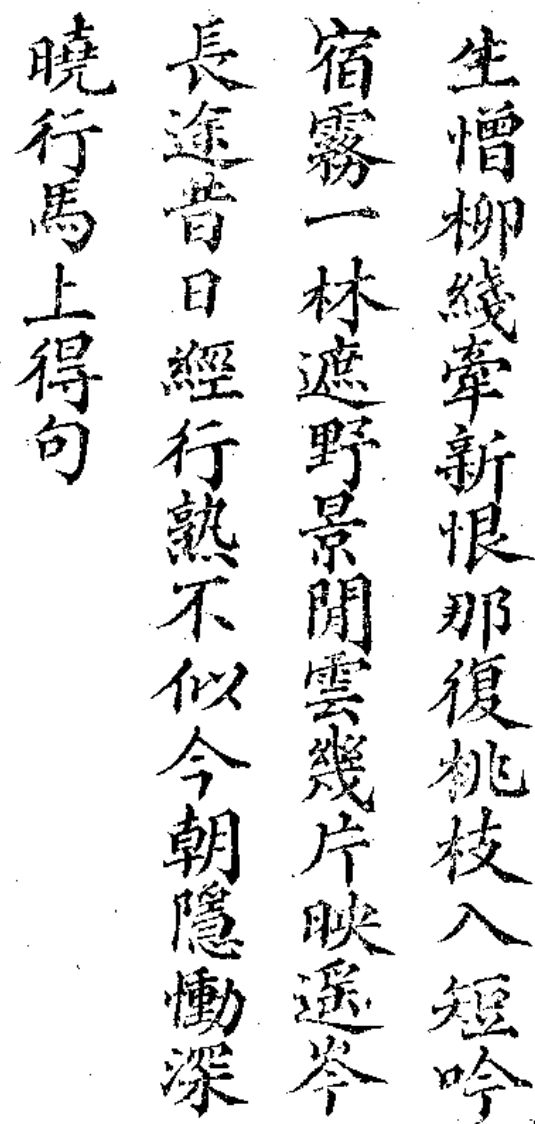 生憎柳綫牽新恨那復桃枝入短吟
宿霧一林遮野景閒雲幾片映遥岑
長途昔日經行熟不似今朝隱慟深
曉行馬上得句